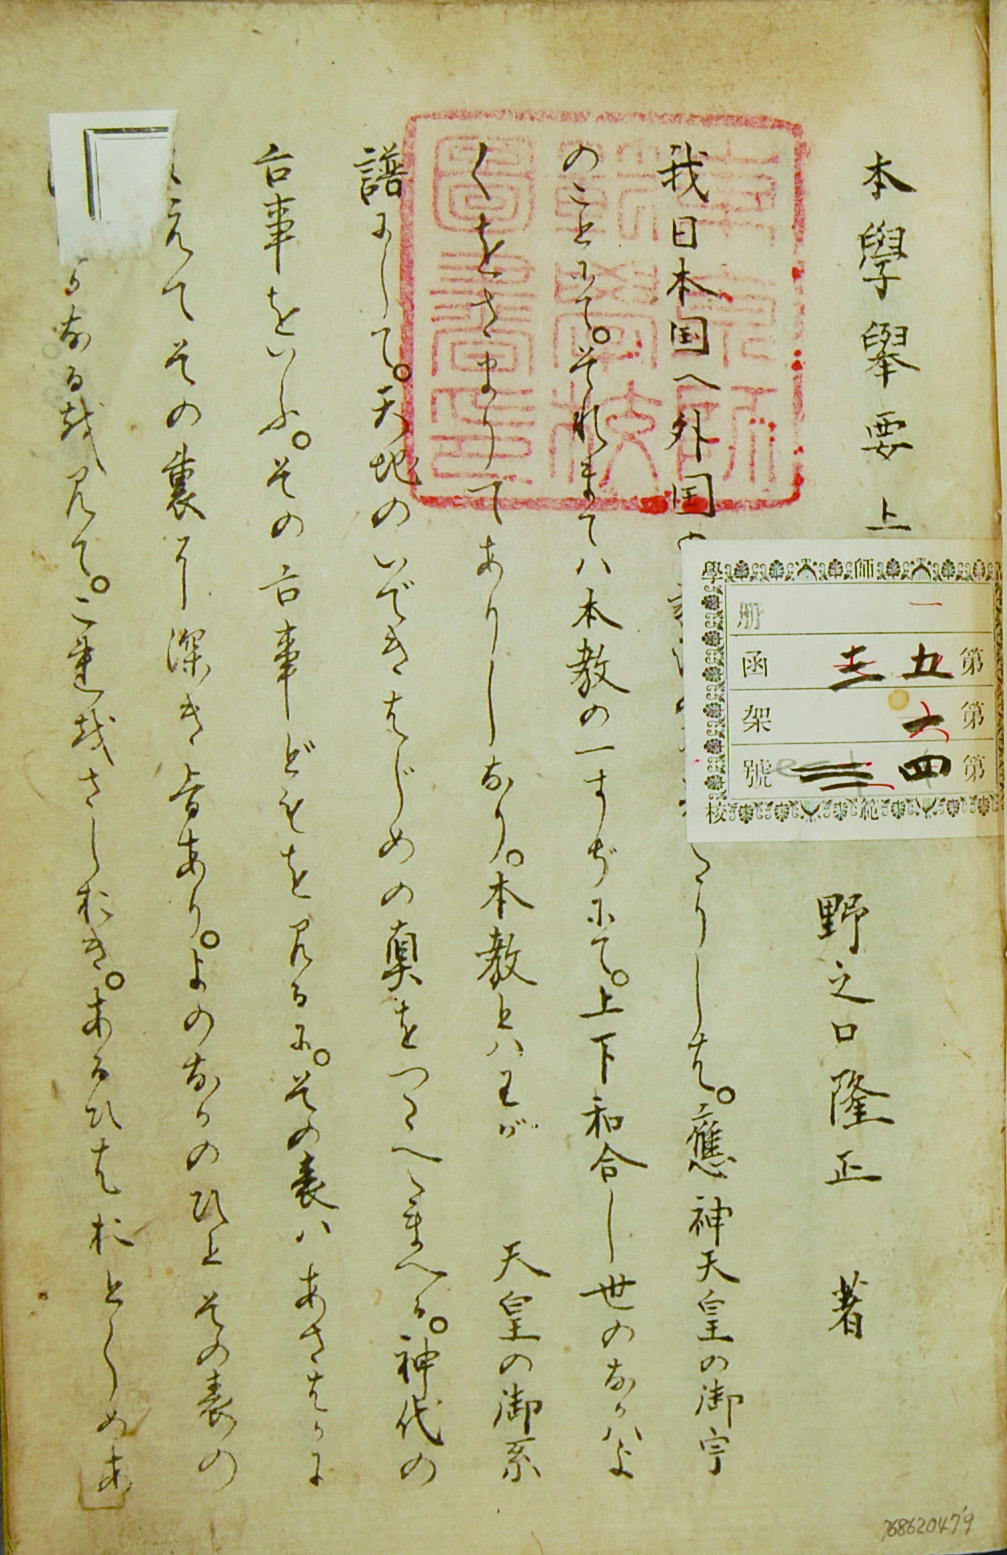 本學擧要上
野之口隆正 著
我日本国へ外国 たりしは。應神天皇の御宇
のことにて。それまてハ本教の一すぢにて。上下和合し世のなかハよ
くをさまりてありしなり。本教とハわが 天皇の御系
譜にして。天地のいできはじめの真をつたへたまへる。神代の
古事をいふ。その古事どもを見るに。その表ハあさはかに
えてその裏に深き旨あり。よのなかのひとその表の
かなる越見て。これ越さしおき。あるひはおとしめあ
東京師範學校圖書印
學師範校
第五 函
第六 架
第四 號
一 册
768620479